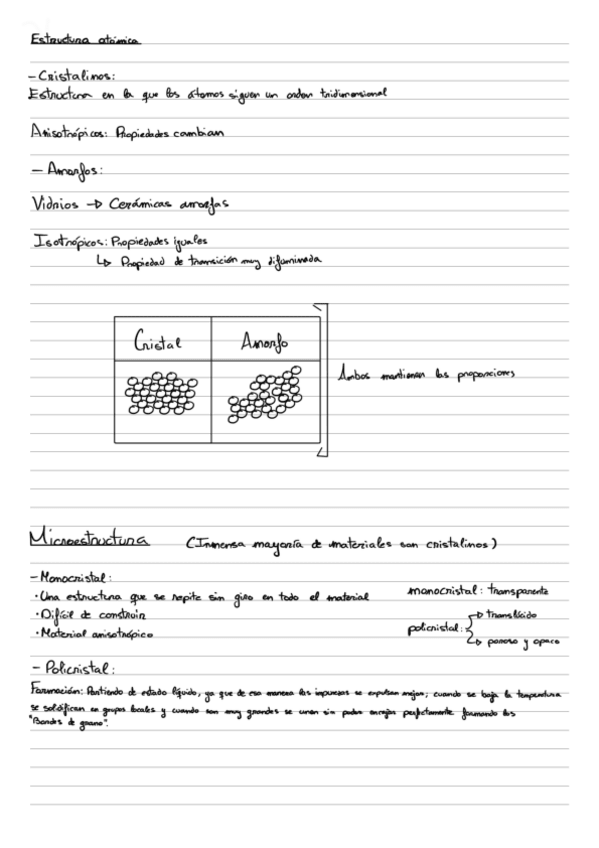 Estructura atómica
- Cristalinos:
Estructura en la que los átomos siguen un orden tridimensional
Anisotrópicos: Propiedades cambian
- Amorfos:
Vidrios → Cerámicas amorfas
Isotrópicos: Propiedades iguales
↳ Propiedad de transición muy difuminada
Cristal Amorfo
Ambos mantienen las proporciones
Microestructura (Inmensa mayoría de materiales son cristalinos)
- Monocristal:
· Una estructura que se repite sin giro en todo el material
· Difícil de construir
· Material anisotrópico
monocristal: transparente
policristal: → translúcido
→ poroso y opaco
- Policristal:
Formación: Partiendo de estado líquido, ya que de esa manera las impurezas se expulsan mejor; cuando se baja la temperatura
se solidifican en grupos locales y cuando son muy grandes se unen sin poder encajar perfectamente formando los
"Bordes de grano".